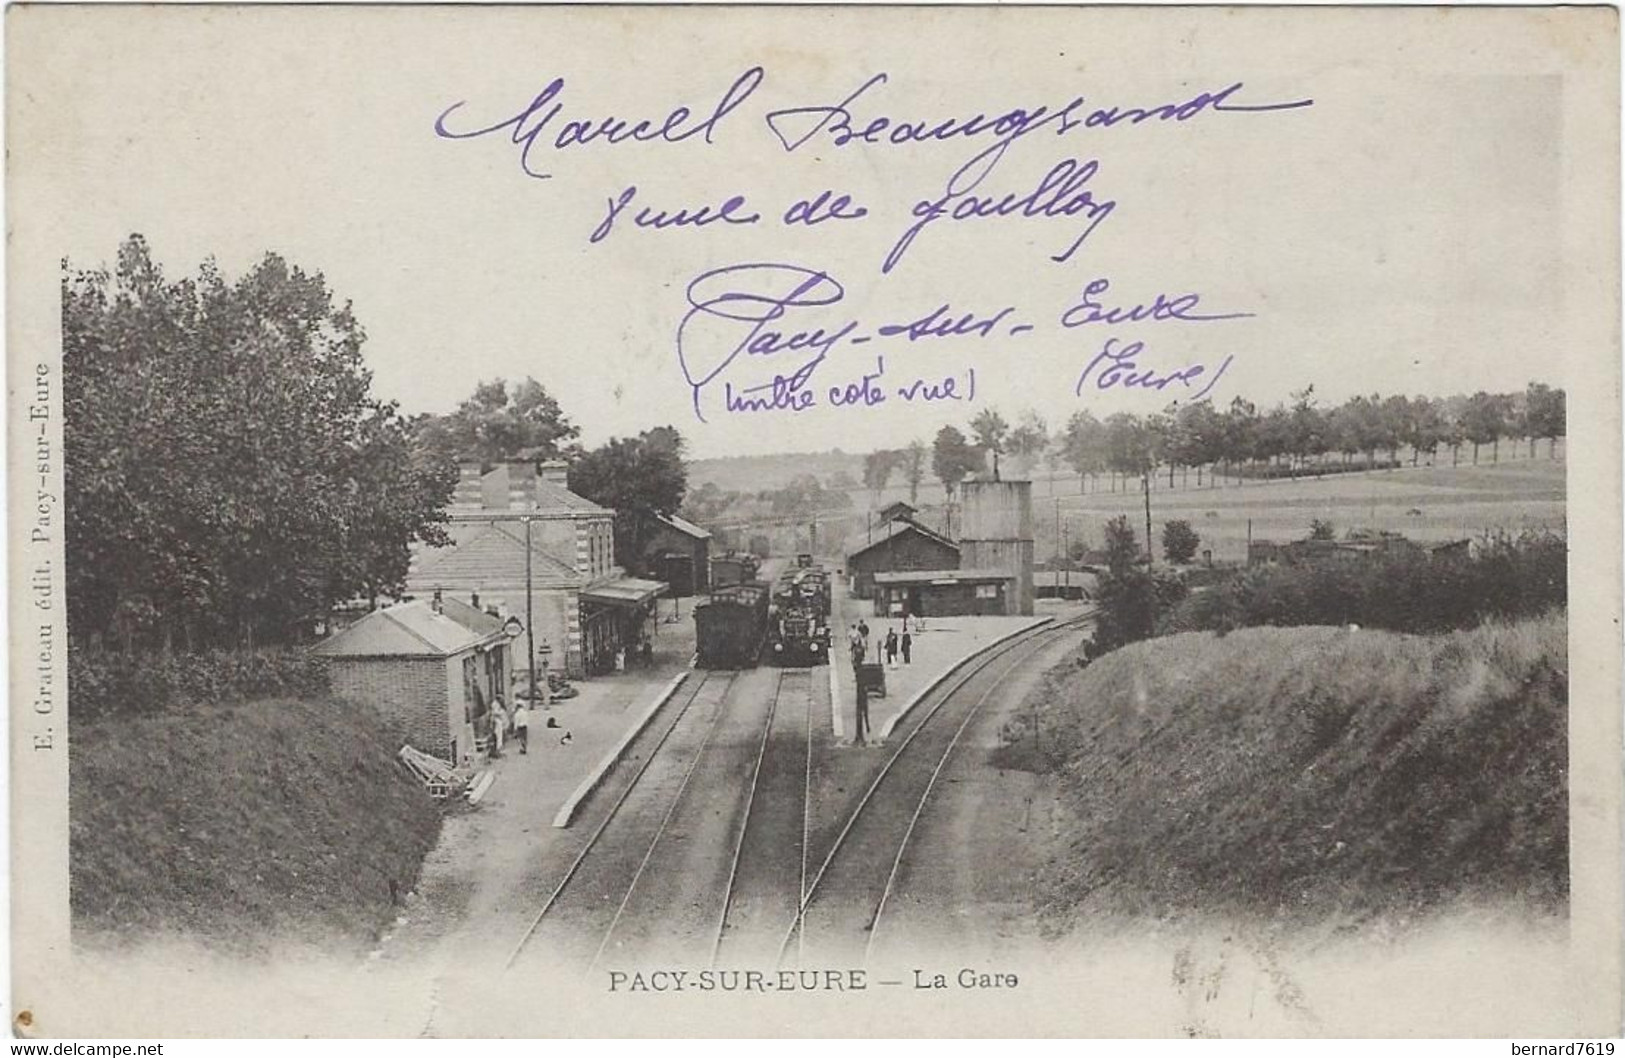 Marcel Beaugrand
8 rue de Gaillon
Pacy-sur-Eure
(timbre coté vue) (Eure)
E. Grateau édit. Pacy-sur-Eure
PACY-SUR-EURE — La Gare
delcampe.net
bernard7619